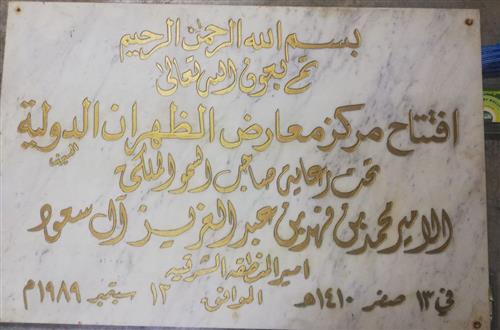 بسم الله الرحمن الرحيم
تم بعون الله تعالى
افتتاح مركز معارض الظهران الدولية
تحت رعاية صاحب السمو الملكي
الامير محمد بن فهد بن عبد العزيز آل سعود
امير المنطقه الشرقيه
في ١٣ صفر ١٤١٠هـ الموافق ١٢ سبتمبر ١٩٨٩م